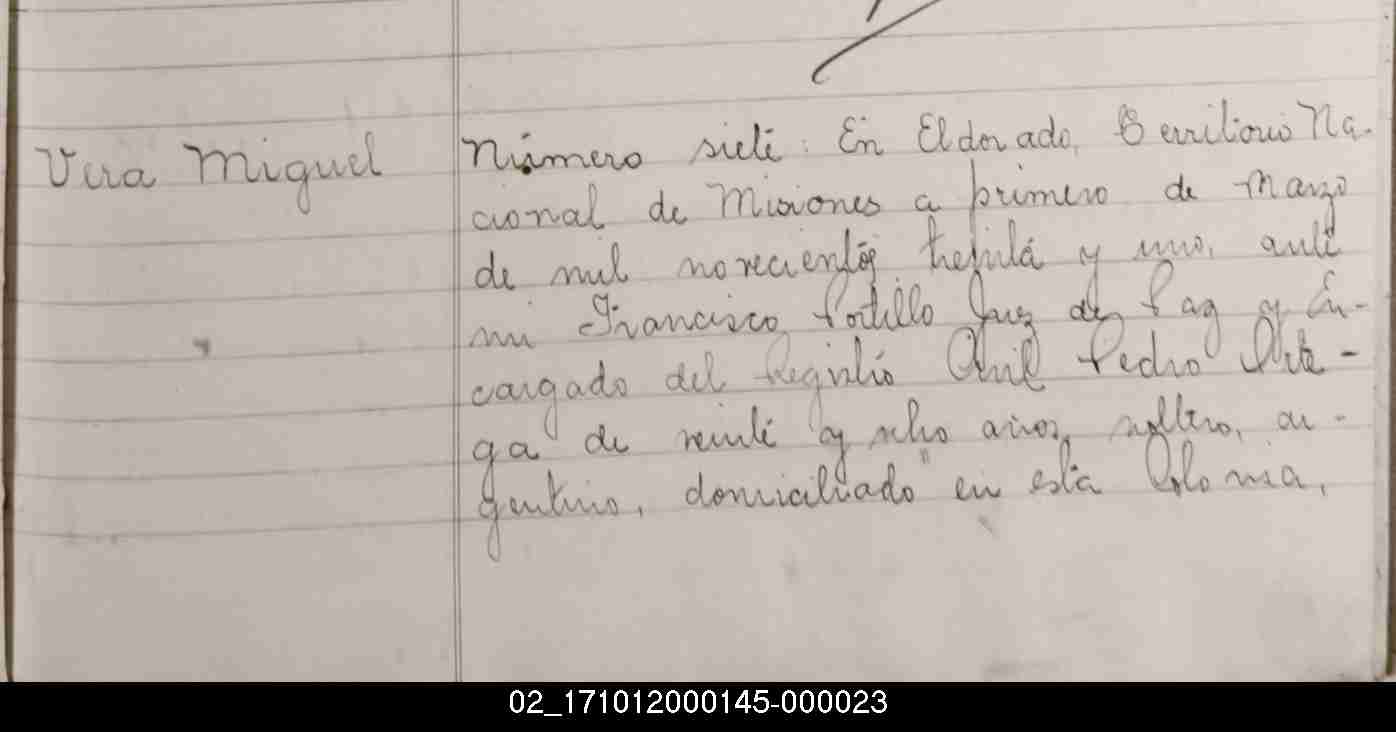 Vera Miguel
Número siete: En Eldorado, Territorio Na-
cional de Misiones a primero de Marzo
de mil novecientos treinta y uno, ante
mi Francisco Portillo Juez de Paz y En-
cargado del Registro Civil Pedro Orte-
ga de veinte y ocho años, soltero, ar-
gentino, domiciliado en esta Colonia,
02_171012000145-000023